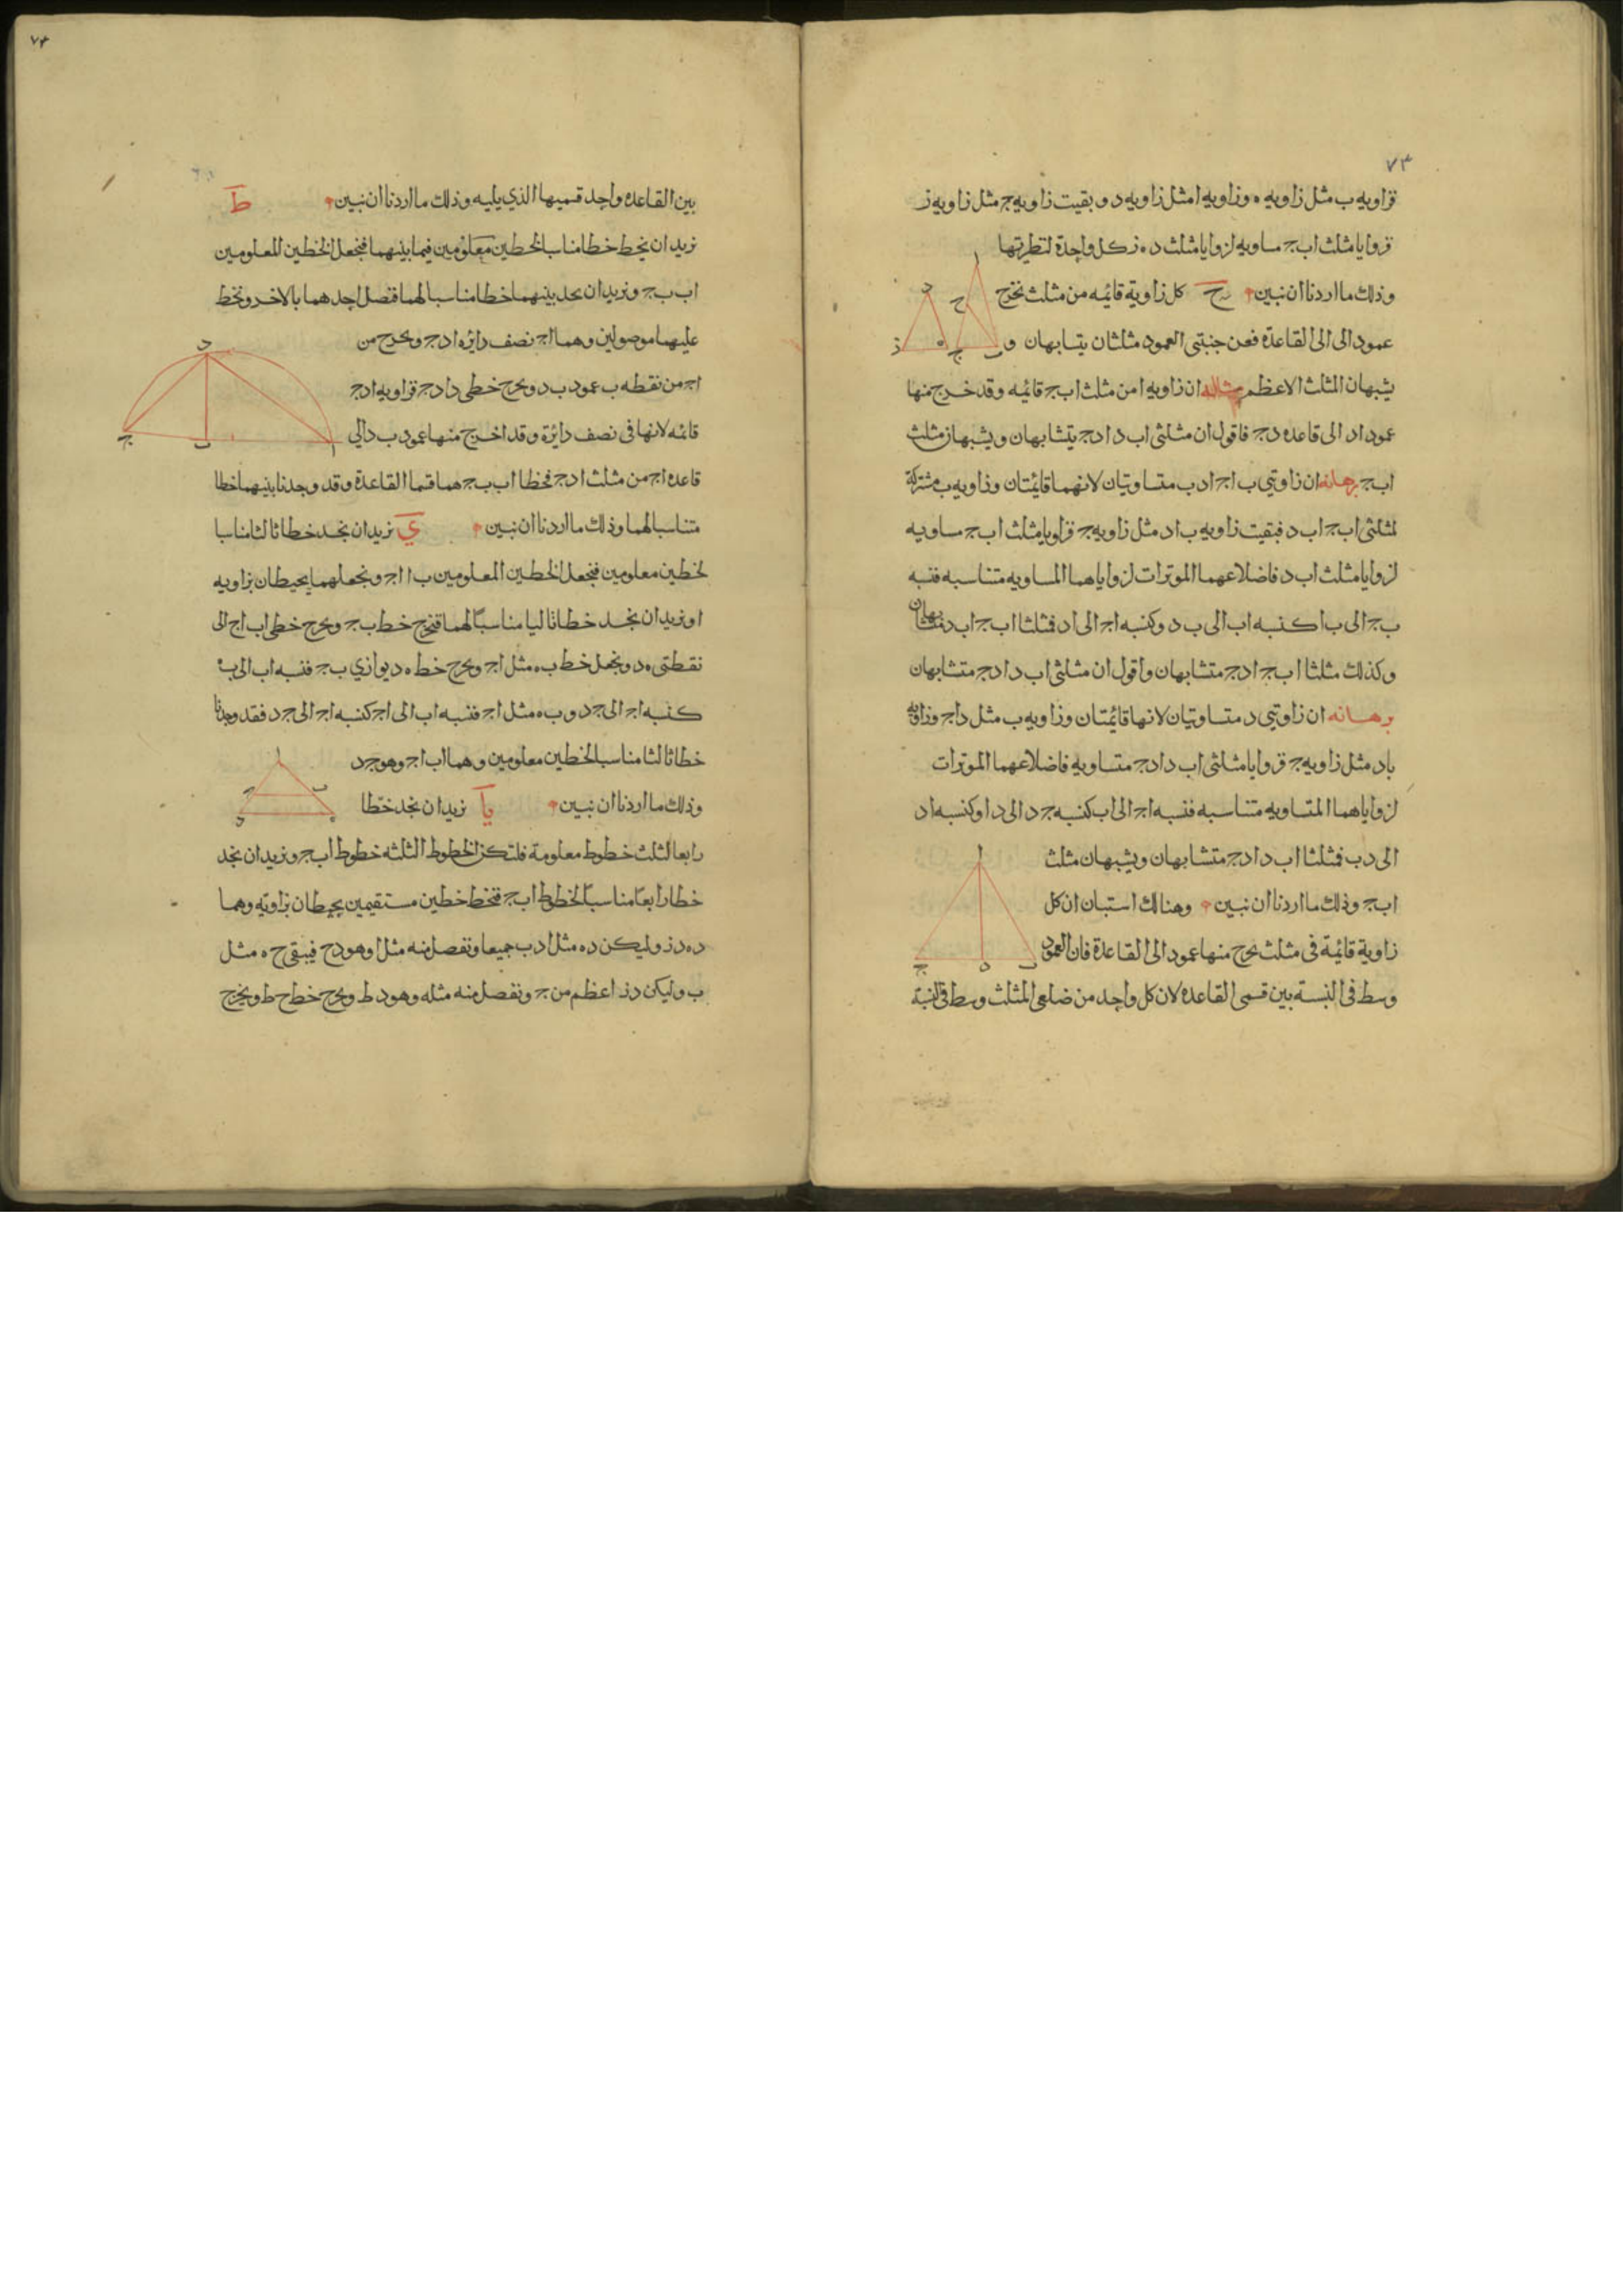 ٧٣
فزاويه ب مثل زاويه ه وزاويه ا مثل زاويه د و بقيت زاويه ج مثل زاويه ز
فزوايا مثلث اب ج مساويه لزوايا مثلث د ه ز كل واحدة لنظيرتها
وذلك ما اردنا ان نبين ح كل زاوية قائمه من مثلث نخرج
عمود الى الى القاعدة فعن جنبتى العمود مثلثان يتشابهان و
يشبهان المثلث الاعظم مثاله ان زاويه ا من مثلث اب ج قائمه وقد خرج منها
عمود اد الى قاعده د ج فاقول ان مثلثى اب د اد ج يتشابهان ويشبهان مثلث
اب ج برهانه ان زاوتيي ب اج اد ب متساوتيان لانهما قائمتان وزاويه ب مشتركة
لمثلثى اب ج اب د فبقيت زاويه ب اد مثل زاويه ج فزاويا مثلث اب ج مساويه
لزوايا مثلث اب د فاضلاعهما الموترات لزواياهما المساويه متناسبه فنسبه
ب ج الى ب ا كنسبه اب الى ب د وكنسبه اج الى اد فمثلثا اب ج اب د متشابهان
وكذلك مثلثا اب ج اد ج متشابهان واقول ان مثلثى اب د اد ج متشابهان
برهانه ان زاوتيي د متساوتيان لانها قائمتان وزاويه ب مثل د اج وزاويه
ب اد مثل زاويه ج فزوايا مثلثى اب د اد ج متساويه فاضلاعهما الموترات
لزواياهما المتساويه متناسبه فنسبه اج الى اب كنسبه ج د الى د ا وكنسبه اد
الى د ب فمثلثا اب د اد ج متشابهان ويشبهان مثلث
اب ج وذلك ما اردنا ان نبين وهنالك استبان ان كل
زاوية قائمة فى مثلث يخرج منها عمود الى القاعدة فان العمود
وسط فى النسبة بين قسمى القاعده لان كل واحد من ضلعى المثلث وسط فى النسبة
٧٤
بين القاعده واحد قسميها الذي يليه وذلك ما اردنا ان نبين ط
نريد ان نخط خطا مناسبا لخطين معلومين فيما بينهما فنجعل الخطين المعلومين
اب ب ج ونريد ان نجد بينهما خطا مناسبا لهما فنصل احدهما بالاخر ونخط
عليهما موصولين وهما اج نصف دايره اد ج ونخرج من
اج من نقطه ب عمود ب د ونخرج خطى د ا د ج فزاويه اد ج
قائمه لانها فى نصف دايرة وقد اخرج منها عمود ب د الى
قاعده اج من مثلث اد ج فخطا اب ب ج هما قسما القاعدة وقد وجدنا بينهما خطا
متناسبا لهما وذلك ما اردنا ان نبين ي نريد ان نجد خطا ثالثا مناسبا
لخطين معلومين فنجعل الخطين المعلومين ب ا اج ونجعلهما يحيطان بزاويه
ا ونريد ان نجد خطا ثاليا مناسبًا لهما فنخرج خط ب ج ونخرج خطى اب اج الى
نقطتى ه د ونجعل خط ب ه مثل اج ونخرج خط ه د يوازي ب ج فنسبه اب الى ب ه
كنسبه اج الى ج د و ب ه مثل اج فنسبه اب الى اج كنسبه اج الى ج د فقد وجدنا
خطا ثالثا مناسبا لخطين معلومين وهما اب اج وهو ج د
وذلك ما اردنا ان نبين يا نريد ان نجد خطًا
رابعا لثلث خطوط معلومة فلتكن الخطوط الثلثه خطوط اب ج ونريد ان نجد
خطا رابعًا مناسبًا لخطوط اب ج فنخط خطين مستقيمين يحيطان بزاويه وهما
د ه د ز وليكن د ه مثل ا د ب جميعا ونفصل منه مثل ا وهو د ح فيبقى ح ه مثل
ب وليكن د ز اعظم من ج ونفصل منه مثله وهو د ط ونخرج خط ح ط ونخرج